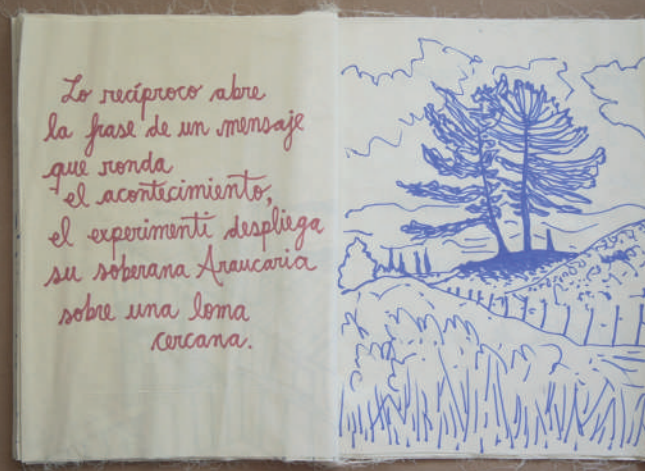 Lo recíproco abre
la frase de un mensaje
que ronda
el acontecimiento,
el experimenti despliega
su soberana Araucaria
sobre una loma
cercana.